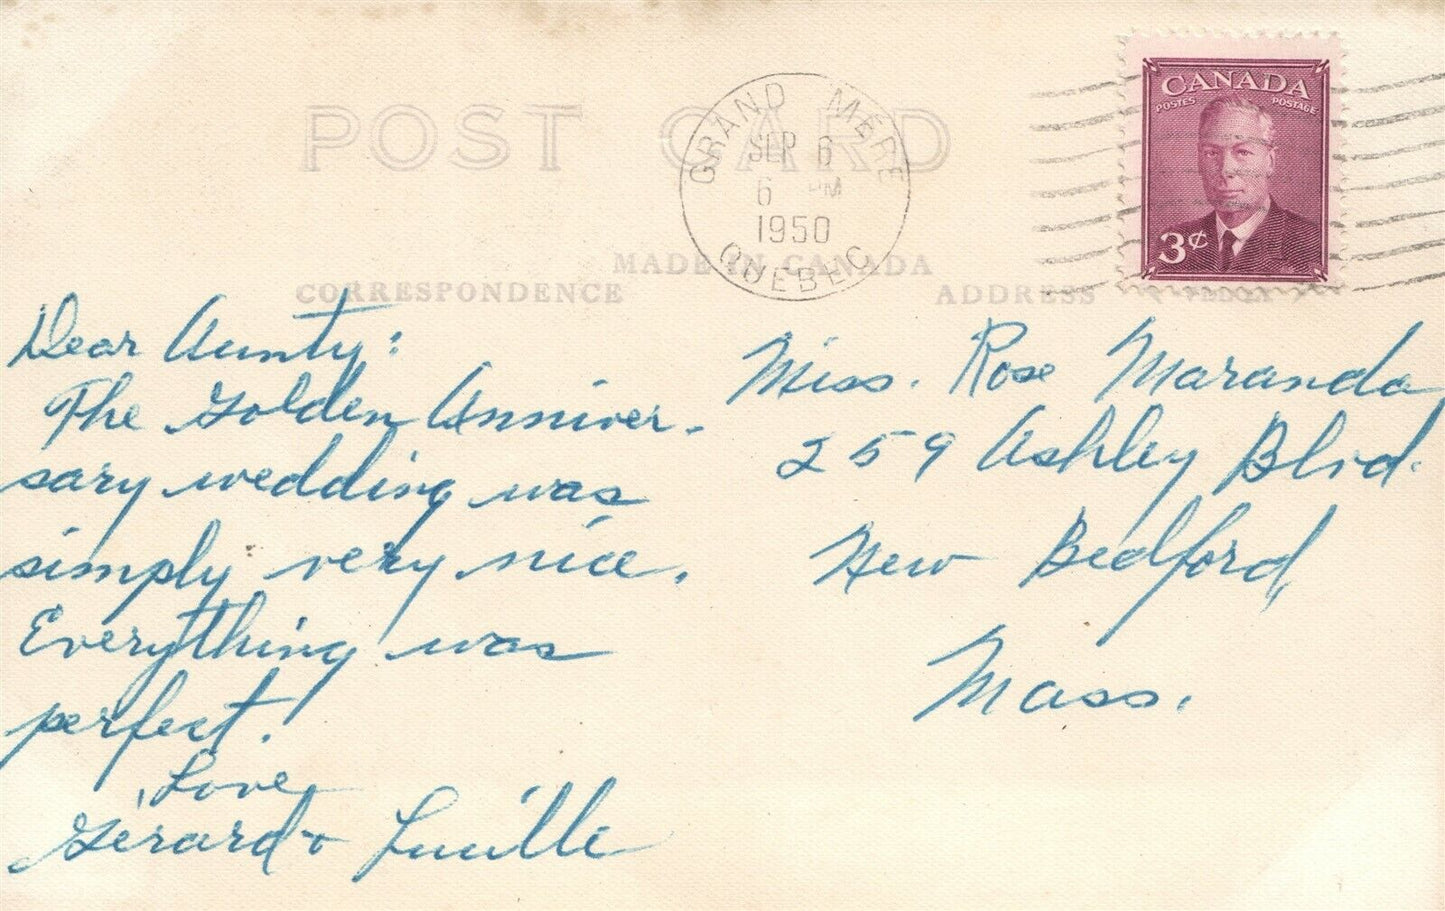 POST CARD
GRAND MERE
SEP 6
6 PM
1950
QUEBEC
CANADA
POSTES POSTAGE
3¢
MADE IN CANADA
CORRESPONDENCE
ADDRESS
Dear Aunty:
The Golden Anniver-
sary wedding was
simply very nice.
Everything was
perfect!
Love,
Gérard & Lucille
Miss. Rose Maranda
259 Ashley Blvd.
New Bedford,
Mass.